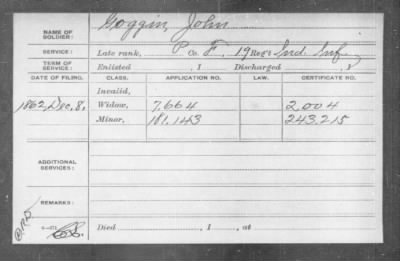 Goggin, John
NAME OF SOLDIER:
SERVICE: Late rank, P Co. F, 19 Reg't Ind. Inf.
TERM OF SERVICE: Enlisted , 1 Discharged , 1
DATE OF FILING. CLASS. APPLICATION NO. LAW. CERTIFICATE NO.
Invalid,
1862, Dec. 8. Widow, 7.664 2.004
Minor, 181.143 243.215
ADDITIONAL SERVICES:
REMARKS:
Died , 1 , at